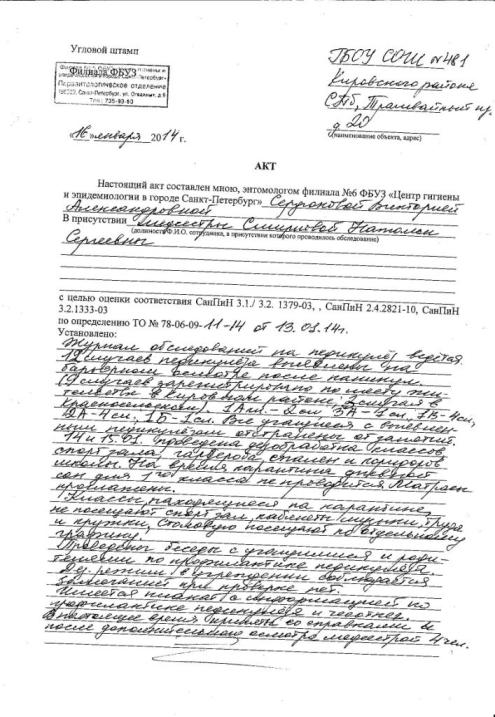 Угловой штамп
Филиала ФБУЗ
Паразитологическое отделение
ГБОУ СОШ №481
Кировского района
СПб, Трамвайный пр.
д 20
(наименование объекта, адрес)
«16» января 2014 г.
АКТ
Настоящий акт составлен мною, энтомологом филиала №6 ФБУЗ «Центр гигиены
и эпидемиологии в городе Санкт-Петербург» Сердюковой Викторией
Александровной
В присутствии медсестры Смирновой Натальи
(должность Ф.И.О. сотрудника, в присутствии которого проводилось обследование)
Сергеевны
с целью оценки соответствия СанПиН 3.1./ 3.2. 1379-03, , СанПиН 2.4.2821-10, СанПиН
3.2.1333-03
по определению ТО № 78-06-09-11-14 от 13.01.14г.
Установлено:
Журнал обследований на педикулёз ведётся.
12 случаев педикулёза выявлены на
осмотре после каникул.
(9 случаев зарегистрировано по месту жи-
тельства в Кировском районе, 3 случая в
Красносельском). 1А кл.-2сл 3А-1сл, 1Б-4сл,
2А-4сл, 1Б-1сл. Все учащиеся с выявлен-
ным педикулёзом отстранены от занятий.
14 и 15.01. проведена обработка классов,
спортзала, гардероба, спален и коридоров
школы. На время карантина дневной
сон для 1го класса не проводится. Матрасы
Классы, находящиеся на карантине,
не посещают спортзал, кабинеты музыки, труда
и кружки, столовую посещают по отдельному
графику.
Проведены беседы с учащимися и роди-
телями по профилактике педикулёза.
режим в учреждении соблюдается
замечаний при проверке нет.
Имеется плакат с информацией по
профилактике педикулёза и чесотки.
В настоящее время приняты со справками и
после дополнительного осмотра медсестрой 4 чел.